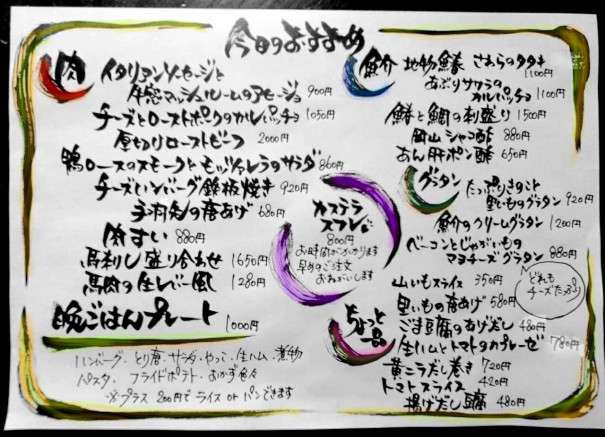 今日のおすすめ
肉
イタリアンソーセージと
生マッシュルームのアヒージョ 900円
チーズとローストポークのカルパッチョ 1050円
厚切りローストビーフ 2000円
鴨ロースのスモークとモッツァレラのサラダ 860円
チーズハンバーグ鉄板焼き 920円
手羽先の唐あげ 680円
肉すい 880円
馬刺し盛り合わせ 1650円
馬肉の生レバー風 1280円
晩ごはんプレート
1000円
ハンバーグ・とり唐・サラダ・やっこ・生ハム・煮物
パスタ・フライドポテト・おかず色々
※プラス 200円でライス or パンできます
カステラ
スフレ
800円
お時間がかかります
早めのご注文
おねがいします
魚介
地物鰆 さわらのタタキ 1100円
あぶりサワラの
カルパッチョ 1100円
鮮と鯛の刺盛り 1500円
岡山シャコ酢 880円
あん肝ポン酢 650円
グラタン
たっぷりきのこと
里いものグラタン 920円
魚介のクリームグラタン 1200円
ベーコンとじゃがいもの
マヨチーズグラタン 880円
どれも
チーズたっぷり
ちょっと
一品
山いもスライス 350円
里いもの唐あげ 580円
ごま豆腐のあげだし 480円
生ハムとトマトのカプレーゼ 780円
黄ニラだし巻き 720円
トマトスライス 420円
揚げだし豆腐 480円